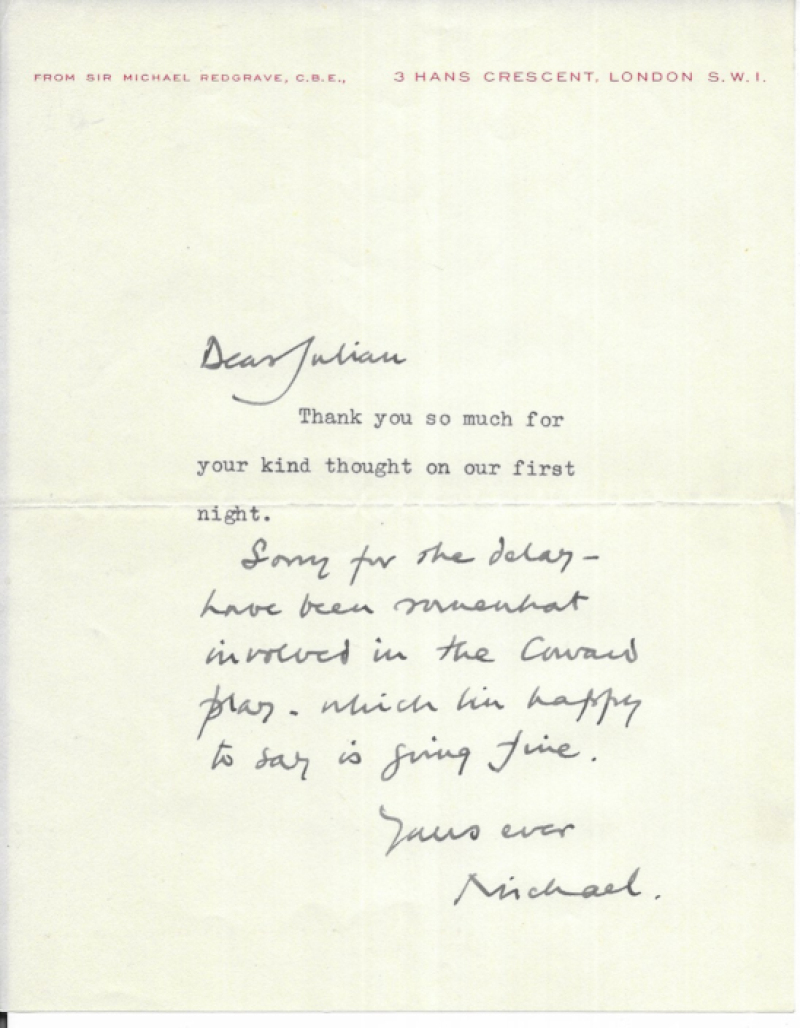 FROM SIR MICHAEL REDGRAVE, C.B.E., 3 HANS CRESCENT, LONDON S.W.1.
Dear Julian
Thank you so much for
your kind thought on our first
night.
Sorry for the delay –
have been somewhat
involved in the Coward
play - which I'm happy
to say is going fine.
Yours ever
Michael.